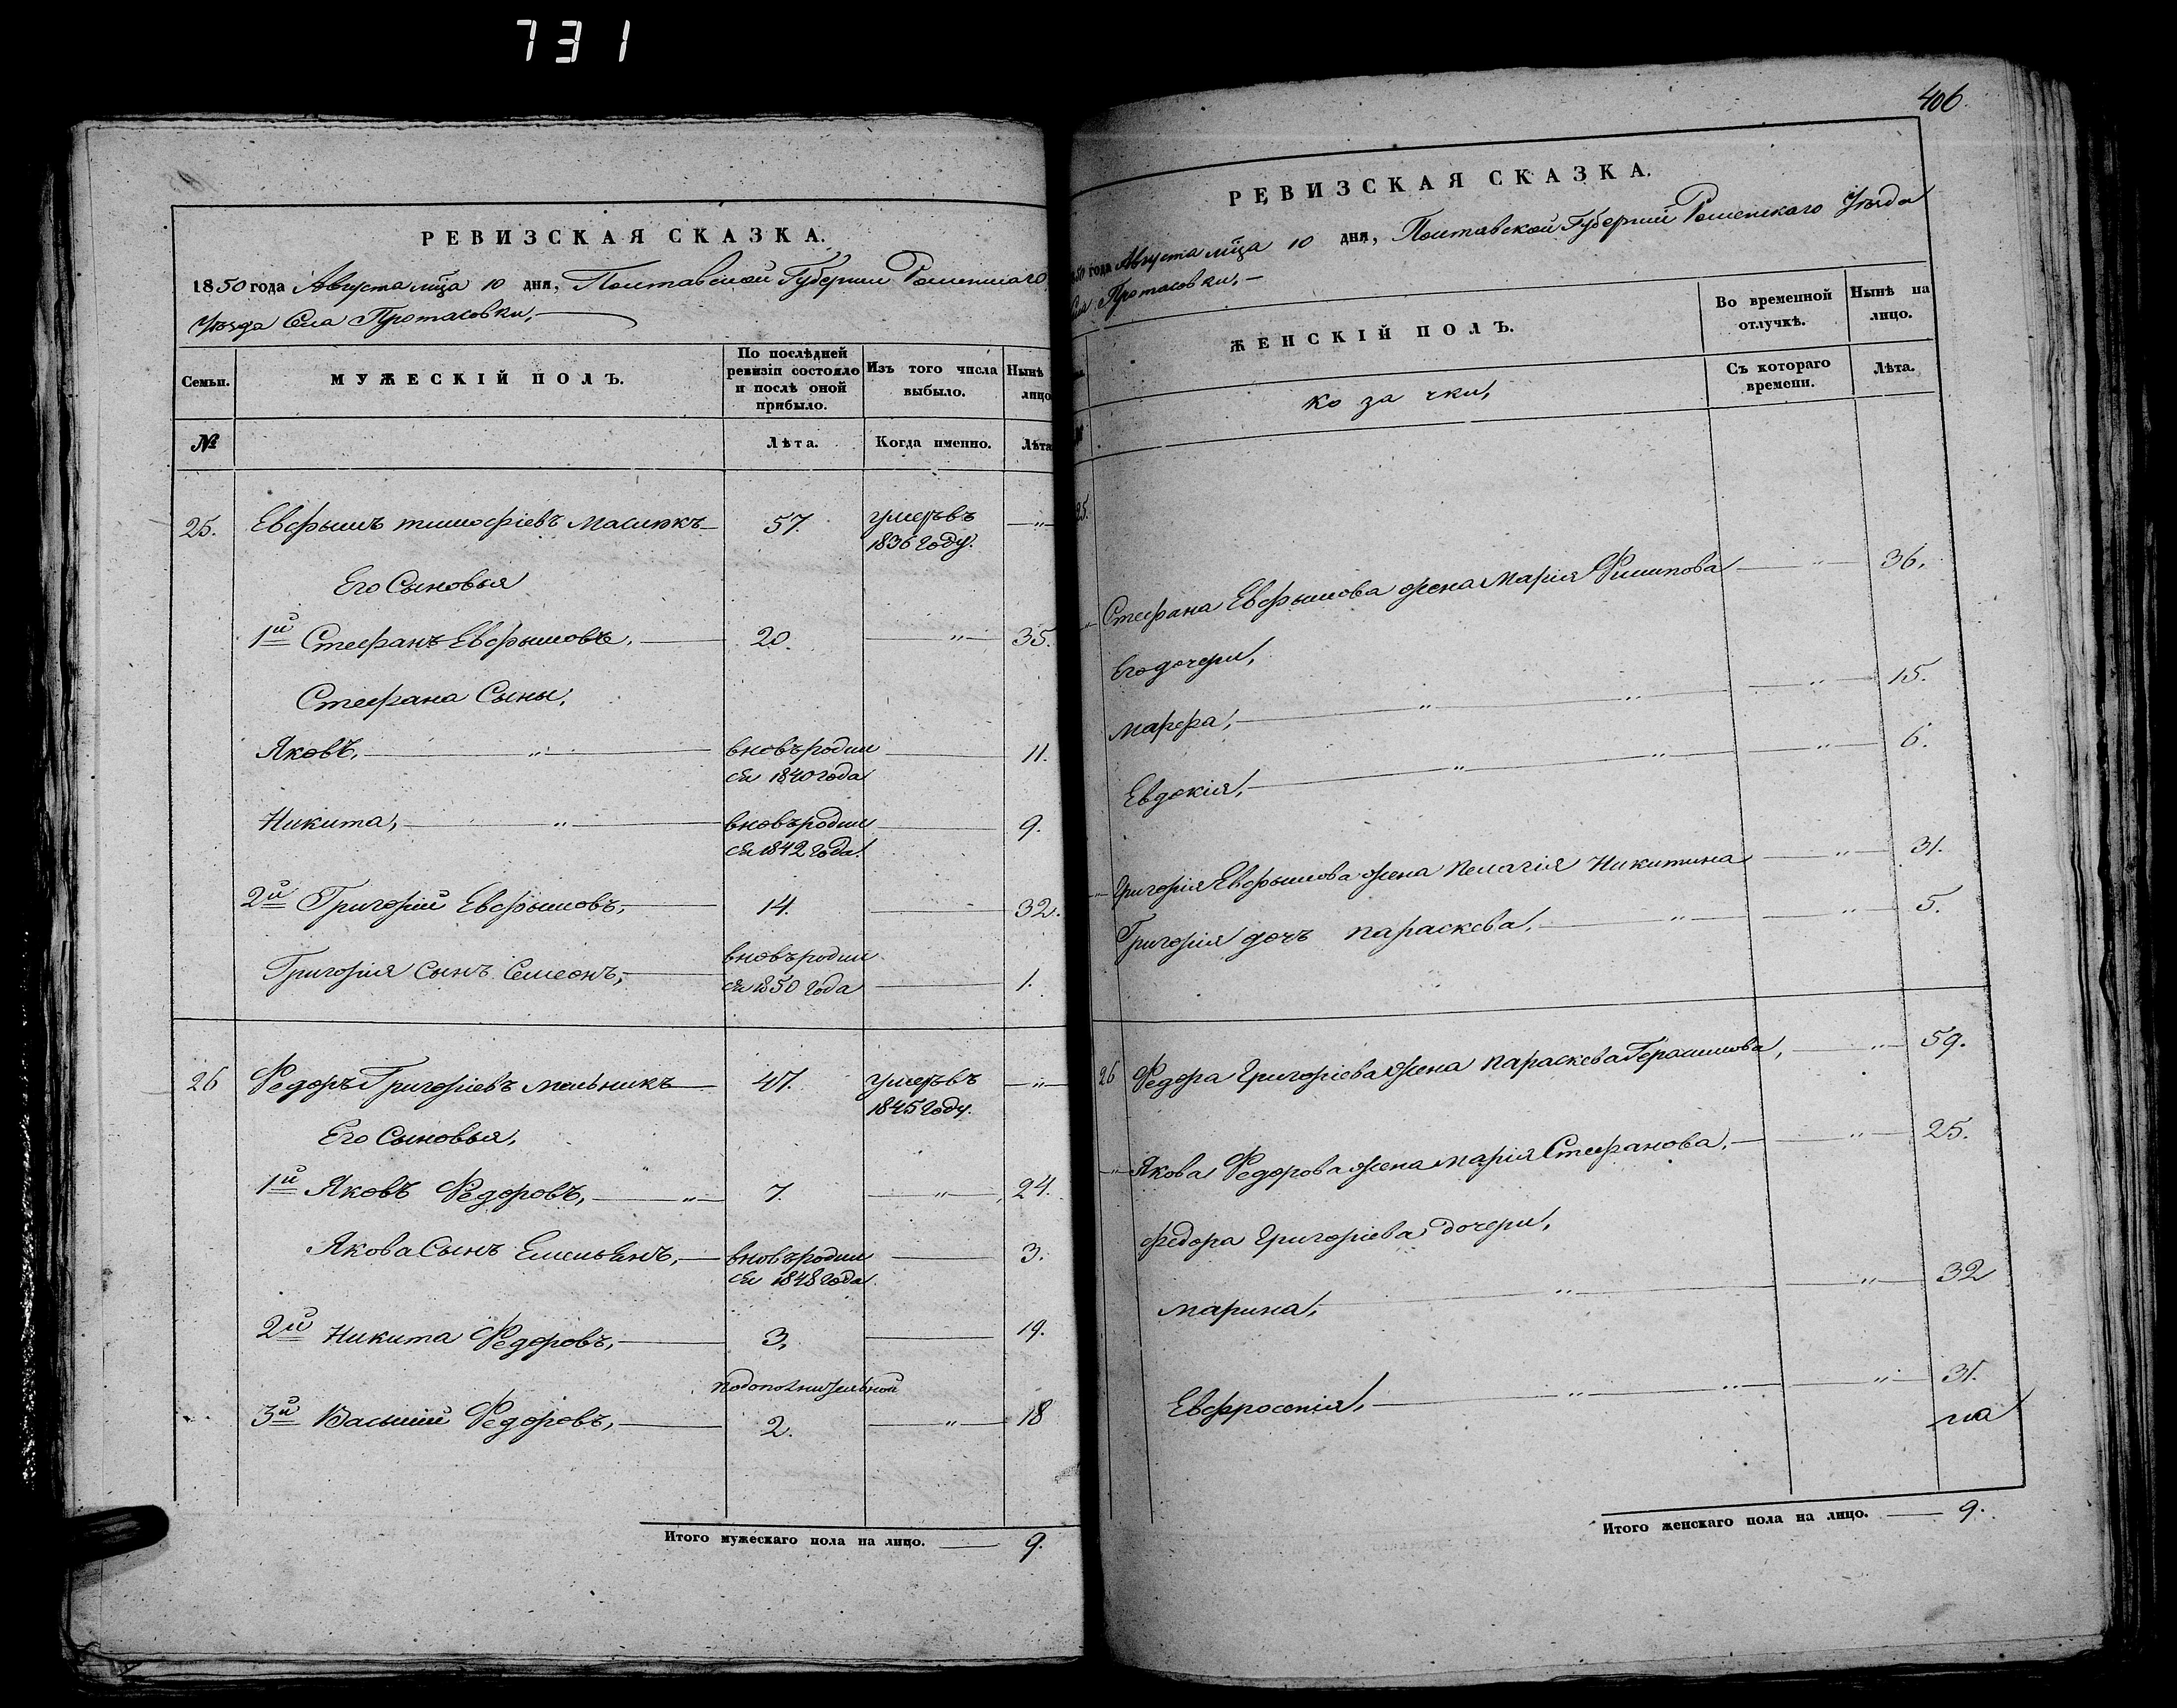 731
РЕВИЗСКАЯ СКАЗКА.
1850 года Августа мца 10 дня, Полтавской Губернии Роменского
Уезда Села Протасовки,
Семьи.
МУЖЕСКІЙ ПОЛЪ.
По послѣдней ревизіи состояло и послѣ оной прибыло.
Изъ того числа выбыло.
Нынѣ лицо
№
Лѣта.
Когда именно.
Лѣта
25. Евфимъ Тимофіевъ 57. умеръ въ 1836 году. "
Его Сыновья
1й Стефанъ Евфымовъ, 20. " 35.
Стефана Сыны,
Яковъ, " вновь родил
ся 1840 года 11.
Никита, " вновь родил
ся 1842 года. 9.
2й Григорій Евфымовъ, 14. 32.
Григорія Сынъ Семеонъ, вновь родил
ся 1850 года 1.
26 Федоръ Григоріевъ Мельникъ 47. умеръ въ 1845 году. "
Его Сыновья,
1й Яковъ Федоровъ, " 7. " 24.
Якова Сынъ Емельянъ, вновь родил
ся 1848 года. 3.
2й Никита Федоровъ, 3. 19.
подополнительной
3й Василий Федоровъ, 2. " 18
Итого мужескаго пола на лицо. 9.
406.
РЕВИЗСКАЯ СКАЗКА.
50 года Августа мца 10 дня, Полтавской Губерніи Роменскаго Уезда
Села Протасовки,
ЖЕНСКІЙ ПОЛЪ.
Во временной отлучкѣ.
Нынѣ на лицо.
козачки,
Съ котораго времени.
Лѣта.
25.
" Стефана Евфымова жена Марія Филипова " 36.
Его дочери,
Марфа, " " " 15.
Евдокія, " " " 6.
" Григорія Евфымова жена Пелагія Никитина " 31.
Григорія дочь Параскева, " " 5.
26 Федора Григоріева жена Параскева Герасимова, " 59.
" Якова Федорова жена Марія Стефанова, " 25.
Федора Григоріева дочери,
Марина, " " 32
Евфросенія, " " " 31.
Итого женскаго пола на лицо. 9.